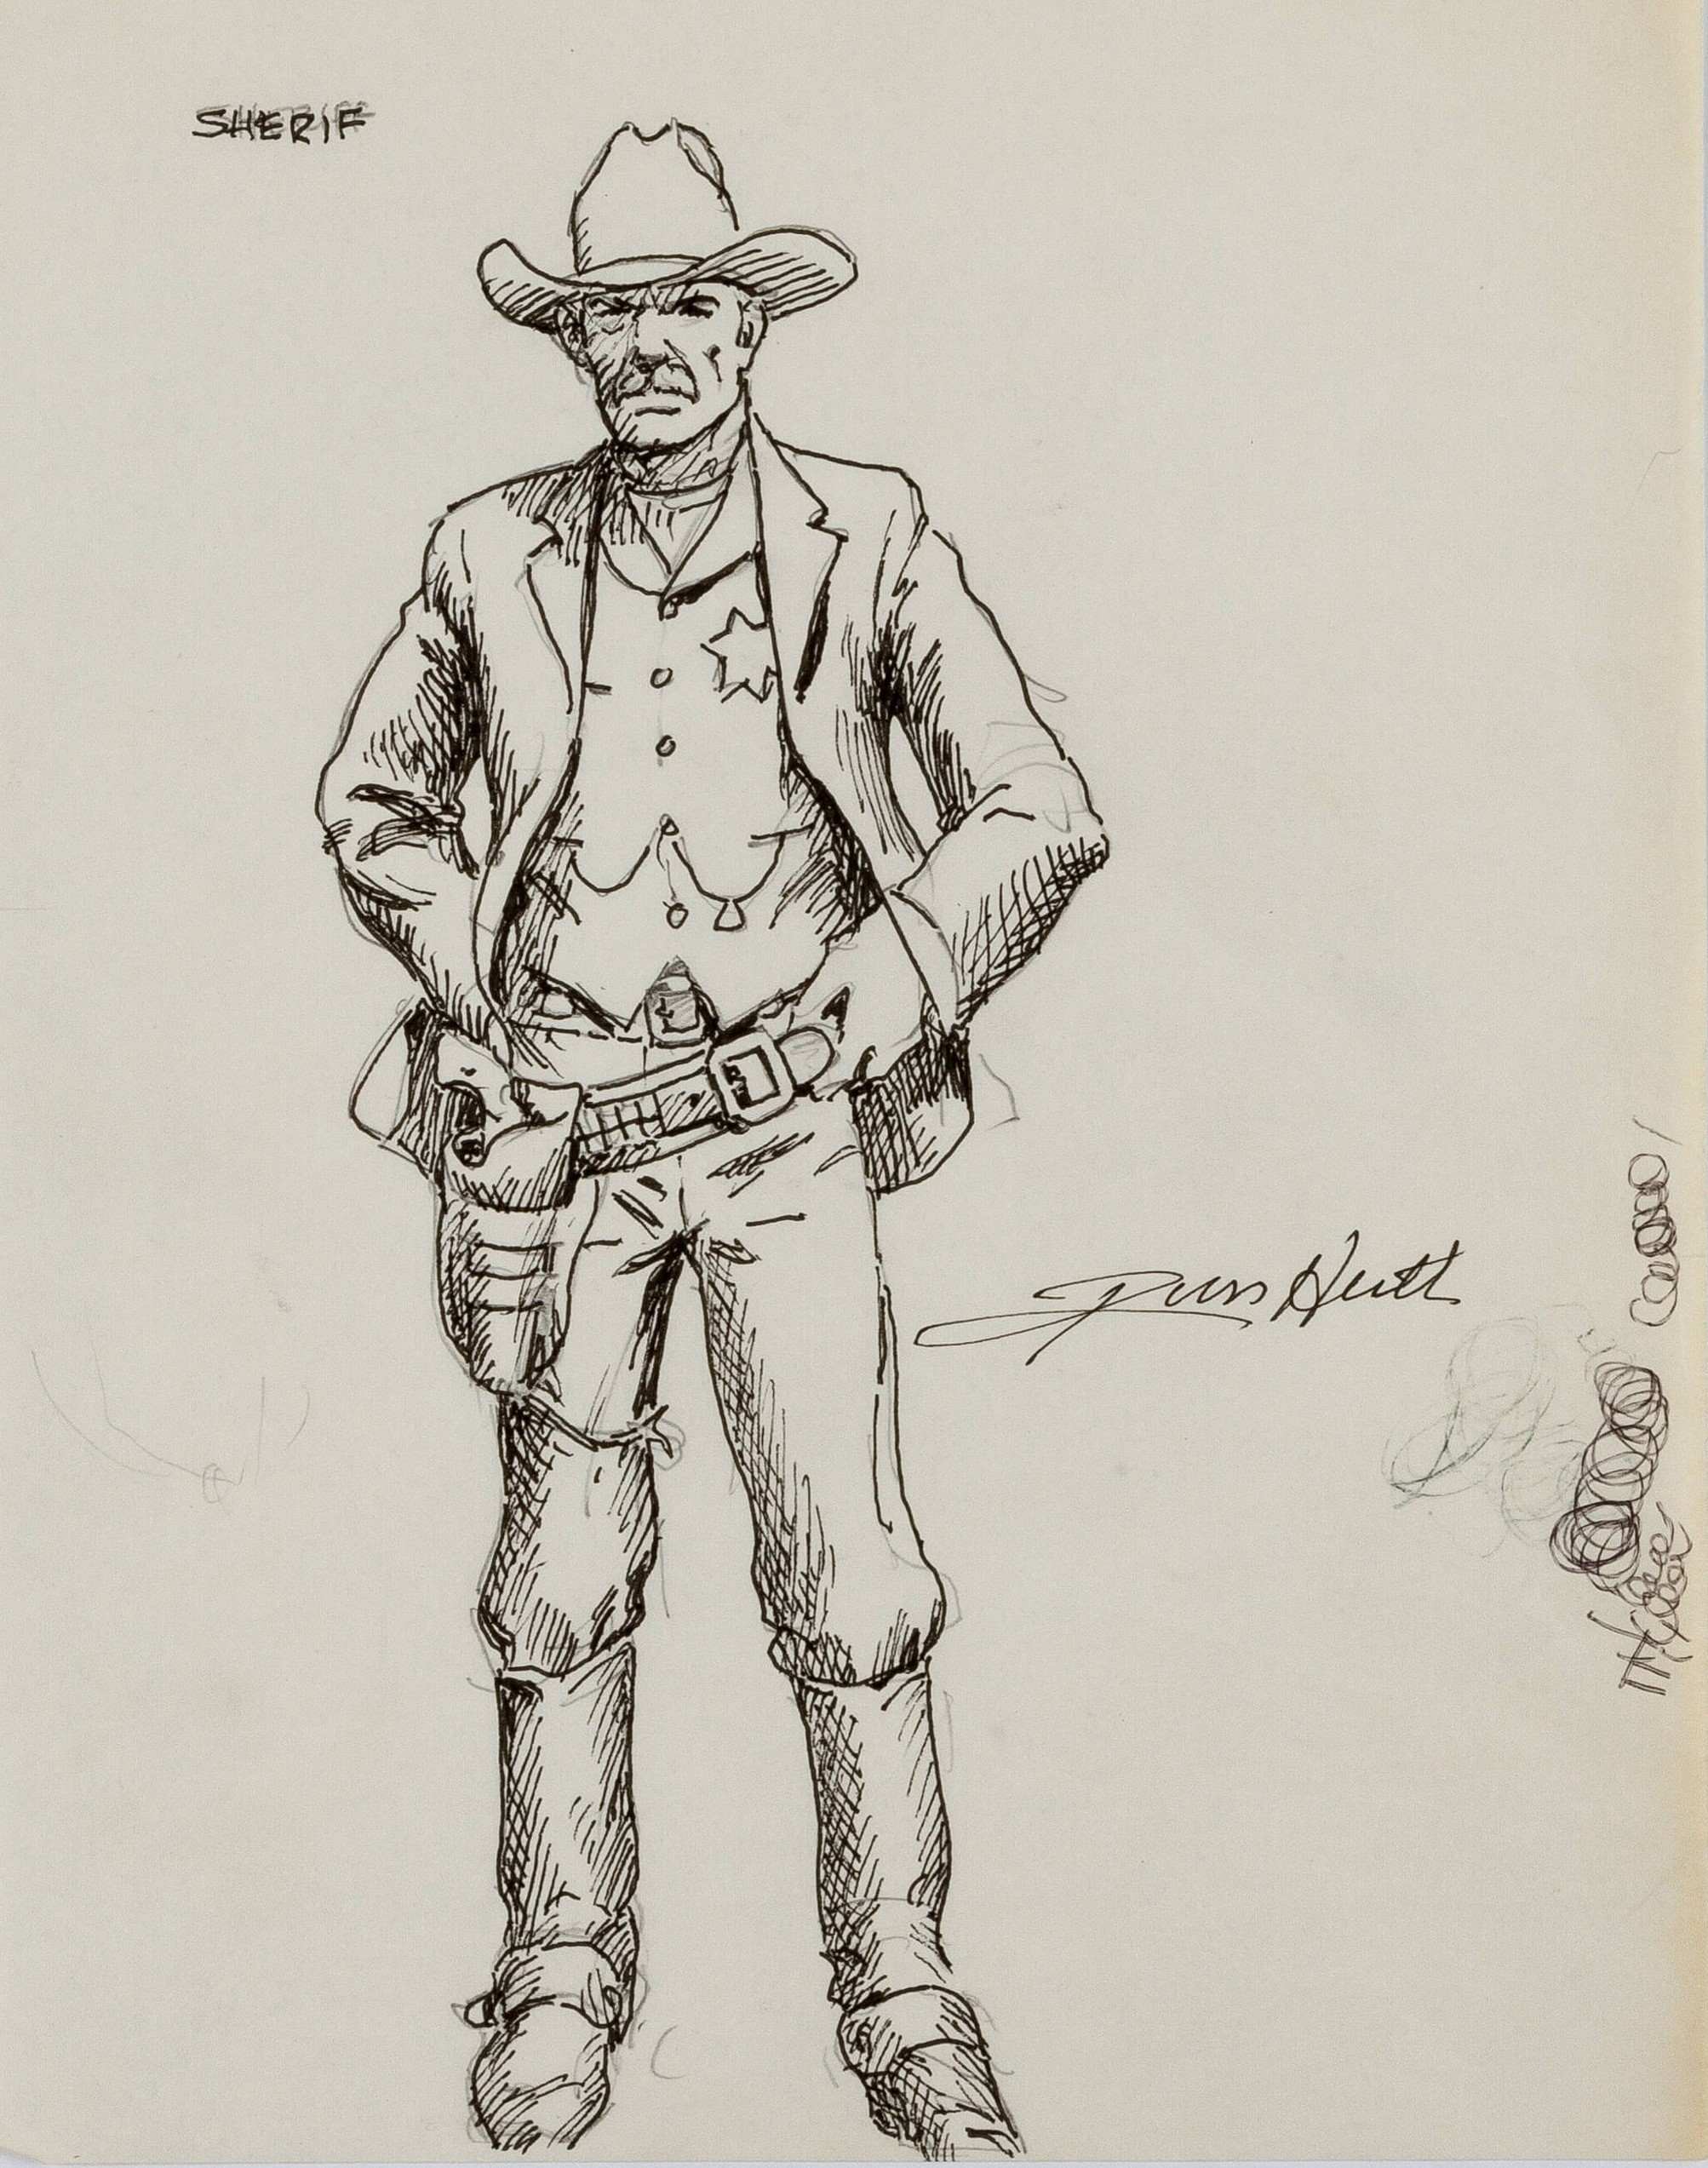 SHERIF
Russ Heath